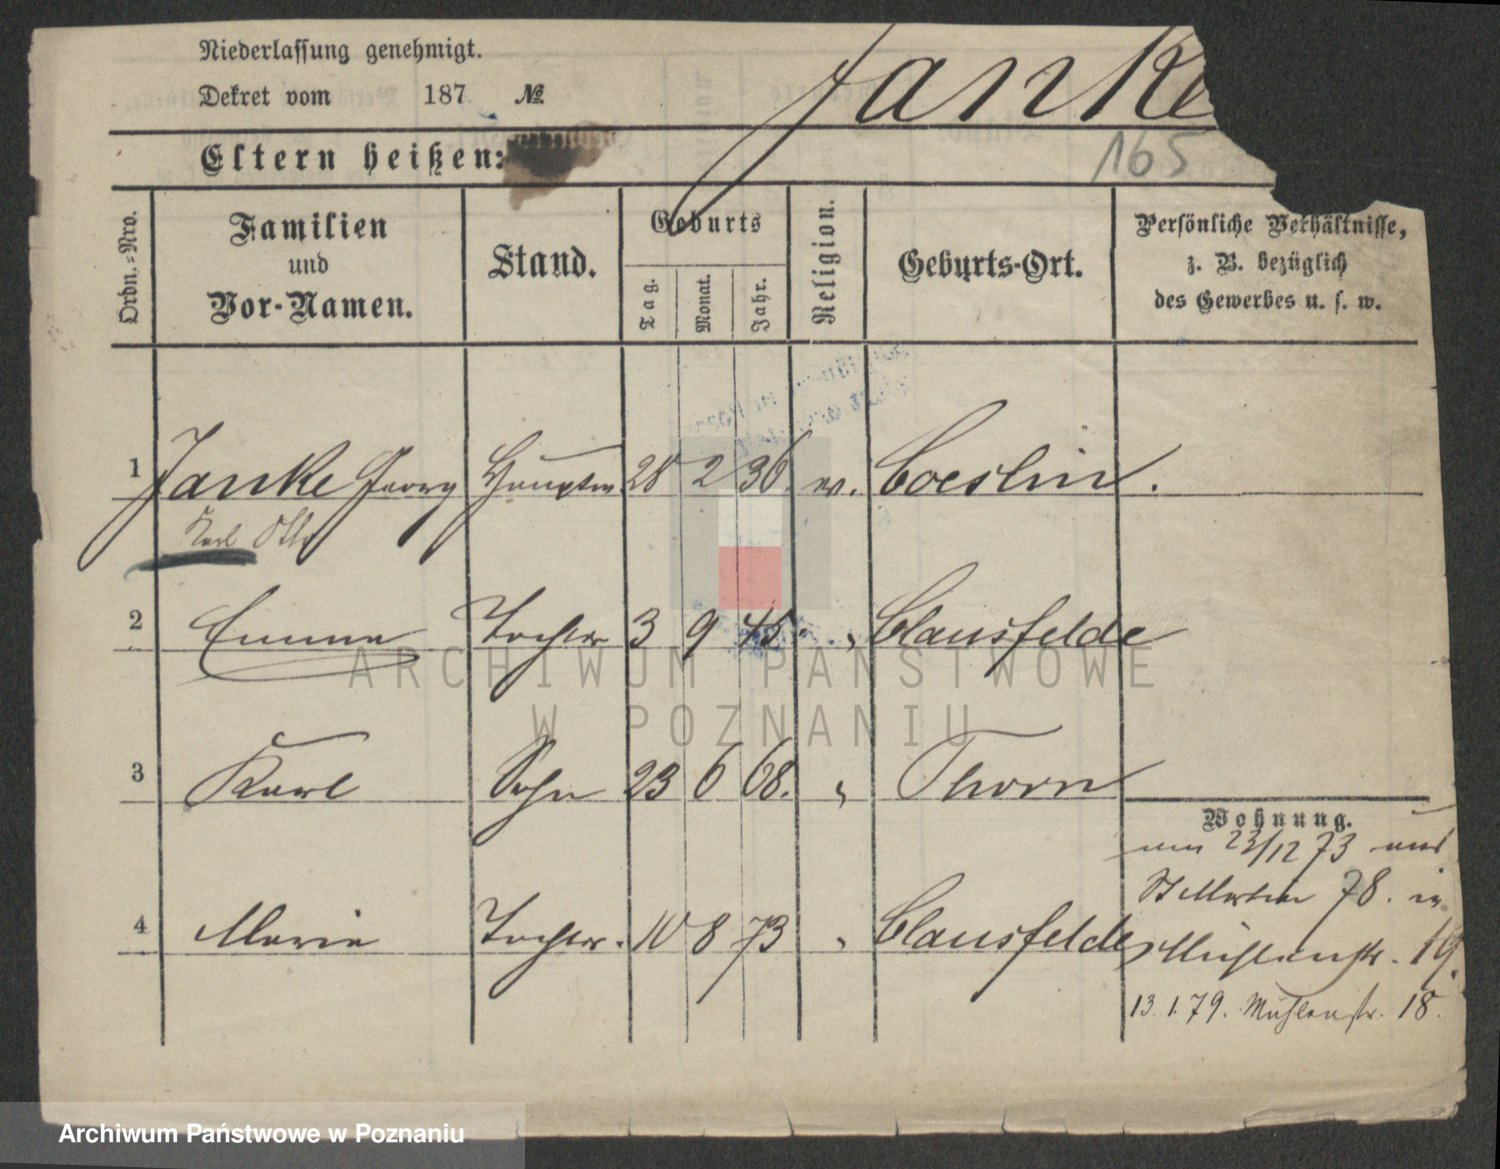 Niederlassung genehmigt.
Janke
Dekret vom 187 №
165
Eltern heißen:
Ordn.-Nro.
Familien
und
Vor-Namen.
Stand.
Geburts
Tag.
Monat.
Jahr.
Religion.
Geburts-Ort.
Persönliche Verhältnisse,
z. B. bezüglich
des Gewerbes u. s. w.
1 Janke Georg Hauptm 28 2 36. ev. Coeslin.
Karl Otto
2 Emma Tochter 3 9 45. " Clausfelde
3 Karl Sohn 23 6 68. " Thorn
Wohnung.
am 23/12 73 aus
St Martin 78. in
4 Marie Tochter. 10 8 73 " Clausfelde
Mühlenstr. 19.
13. 1. 79. Mühlenstr. 18.
ARCHIWUM PAŃSTWOWE
W POZNANIU
Archiwum Państwowe w Poznaniu